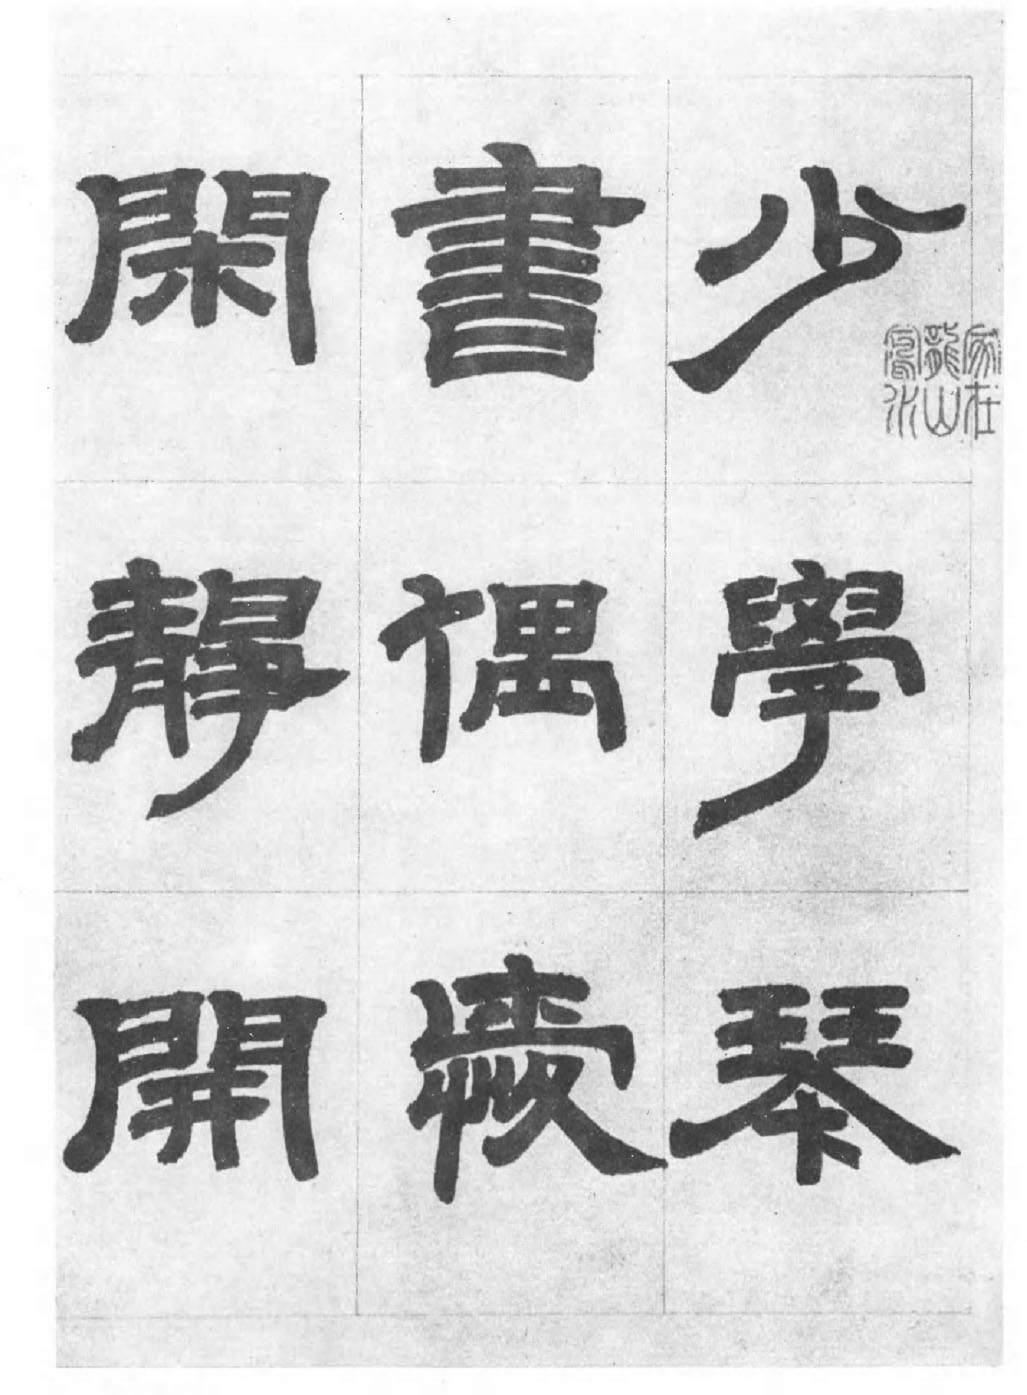 少學琴
書偶愛
閑靜開
家在
龍山
鳳水